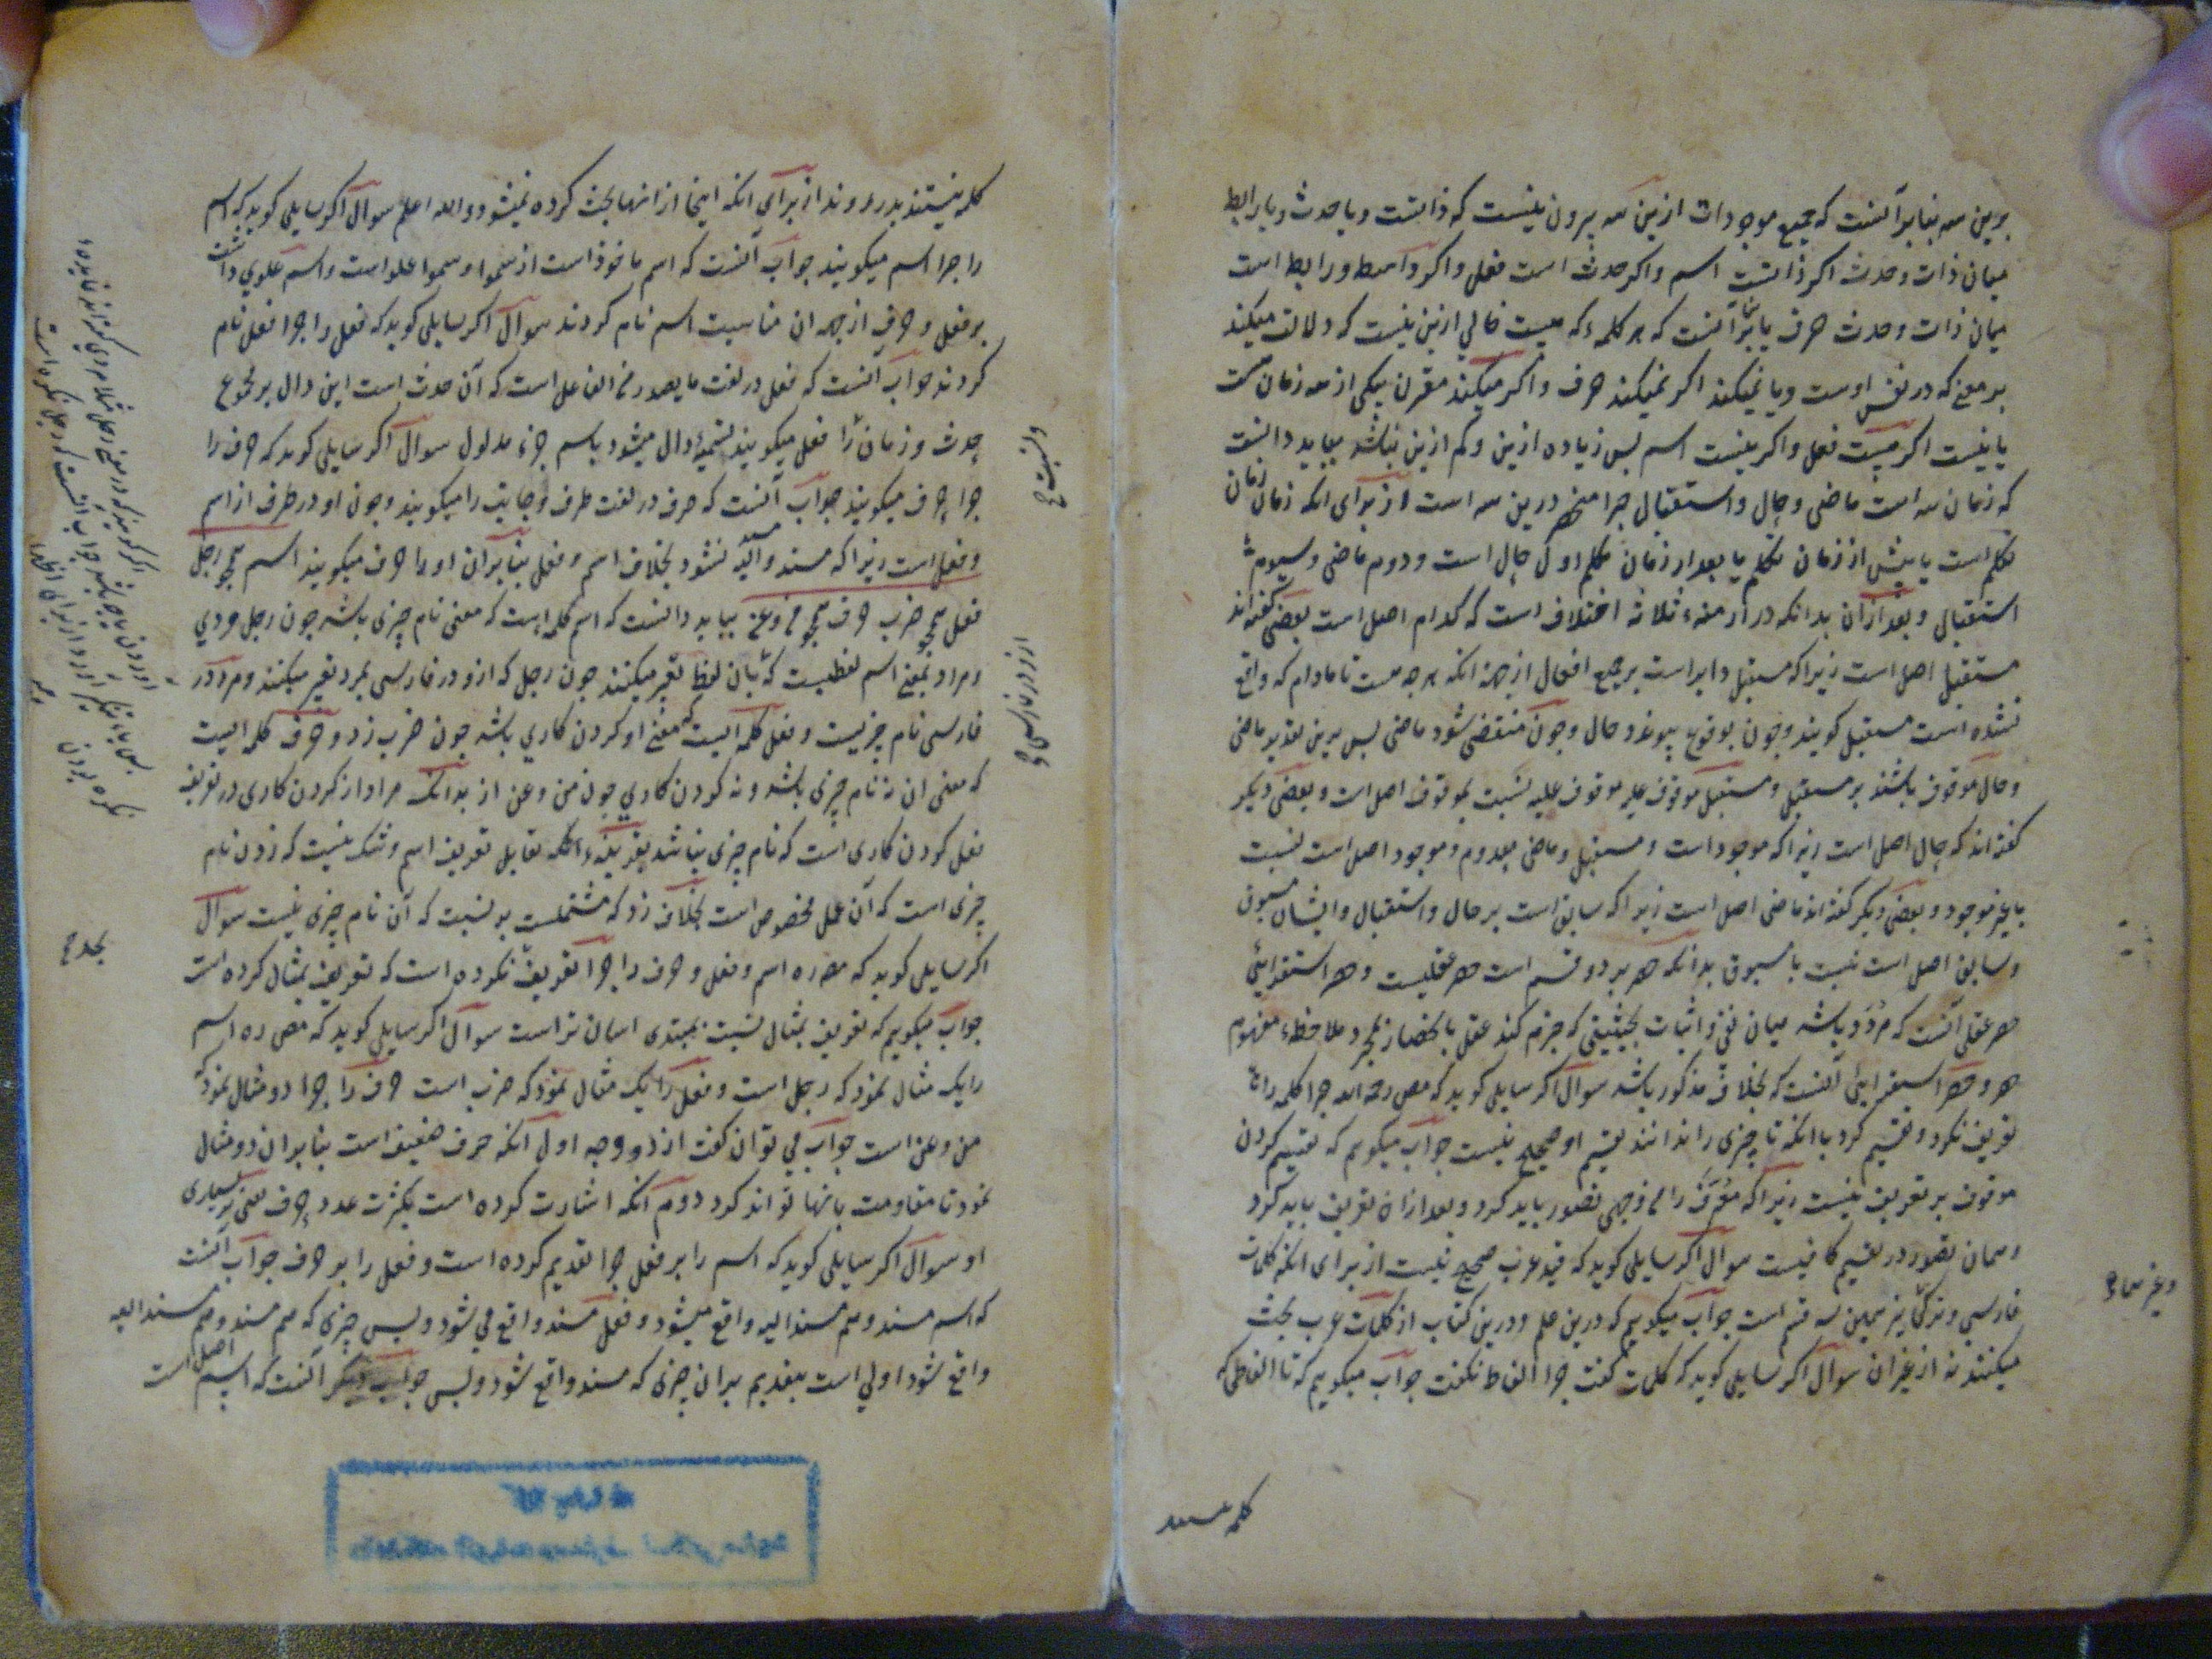 برین سه بنابر آنست که جمیع موجودات ازین سه بیرون نیست که ذاتست ویا حدث ویا رابط
میان ذات وحدث اکر ذاتست اسم واکر حدث است فعل واکر واسط و رابط است
میان ذات وحدث حرف یا بنابر آنست که هر کلمه که هست خالی ازین نیست که دلالت میکند
بر معنی که در نفس اوست ویا نمیکند اکر نمیکند حرف واکر میکند مقرن بیکی از سه زمان هست
یا نیست اکر هست فعل واکر نیست اسم بس زیاده ازین وکم ازین نباشد بباید دانست
که زمان سه است ماضی وحال واستقبال جرا منحصر درین سه است از برای انکه زمان زمان
تکلم است یا پیش از زمان تکلم یا بعد از زمان تکلم اول حال است ودوم ماضی وسیوم
استقبال وبعد ازان بدانکه در ازمنهء ثلاثه اختلاف است که کدام اصل است بعضی کفته اند
مستقبل اصل است زیراکه مستقبل دایر است بر جمیع افعال از جهة انکه هر چه هست تا مادام که واقع
نشده است مستقبل کویند وچون بوقوع پیوندد حال وچون منقضی شود ماضی بس برین تقدیر ماضی
وحال موقوف باشند بر مستقبل ومستقبل موقوف علیه موقوف علیه نسبت بموقوف اصل است وبعضی دیکر
کفته اند که حال اصل است زیراکه موجود است ومستقبل وماضی معدوم وموجود اصل است نسبت
با غیر موجود وبعضی دیکر کفته اند ماضی اصل است زیراکه سابق است بر حال واستقبال وایشان مسبوق
وسابق اصل است نسبت با مسبوق بدانکه حصر بر دو قسم است حصر عقلیست وحصر استقرایی
حصر عقلی آنست که مردد باشد میان نفی واثبات بحیثیتی که جزم کند عقل بانحصار بمجرد ملاحظهء مفهوم
حصر وحصر استقرایی آنست که بخلاف مذکور باشد سوال اکر سایلی کوید که مص رحمه الله جرا کلمه را
تعریف نکرد وتقسیم کرد با انکه تا چیزی را ندانند تقسیم او صحیح نیست جواب میکویم که تقسیم کردن
موقوف بر تعریف نیست زیراکه معرف را وجهی تصور باید کرد وبعد ازان تعریف باید کرد
وهمان تصور در تقسیم کافیست سوال اکر سایلی کوید که قید عرب صحیح نیست از برای انکه کلمات
فارسی وترکی نیز همین سه قسم است جواب میکویم که درین علم ودرین کتاب از کلمات عرب بحث
میکنند نه از غیر ان سوال اکر سایلی کوید که کلمات کفت جرا الفاظ نکفت جواب میکویم که تا الفاظی که
کلمه نیستند
کلمه نیستند بدر روند از برای انکه اینجا از انها بحث کرده نمیشود والله اعلم سوال اکر سایلی کوید که اسم
را جرا اسم میکویند جواب آنست که اسم ماخوذ است از سموا وسموا علو است واسم علوی داشت
بر فعل وحرف از جهة ان مناسبت اسم نام کردند سوال اکر سایلی کوید که فعل را جرا فعل نام
کردند جواب آنست که فعل در لغت ما یصدر من الفاعل است که آن حدث است این دال بر مجموع
حدث وزمان را فعل میکویند تسمیهء دال میشود باسم جزء مدلول سوال اکر سایلی کوید که حرف را
جرا حرف میکویند جواب آنست که حرف در لغت طرف وجانب را میکویند وچون او در طرف از اسم
وفعل است زیراکه مسند ومسند الیه نشود بخلاف اسم وفعل بنابران او را حرف میکویند اسم چو رجل
فعل چو ضرب حرف چو من وعن بباید دانست که اسم کلمه است که معنی نام چیزی باشد چون رجل مردی
ومراد بمعنی اسم لفظیست که بان لفظ تعبیر میکنند چون رجل که ازو در فارسی بمرد تعبیر میکنند ومرد در
فارسی نام چیزیست وفعل کلمه ایست که معنی او کردن کاری باشد چون ضرب زد وحرف کلمه ایست
که معنی ان نه نام چیزی باشد ونه کردن کاری چون من وعن از بدانک مراد از کردن کاری در تعریف
فعل کردن کاری است که نام چیزی نباشد بقرینهء انکه تقابل تعریف اسم وشک نیست که زدن نام
چیزی است که آن عمل مخصوص است بخلاف زد که مشتملست بر نسبت که آن نام چیزی نیست سوال
اکر سایلی کوید که مص ره اسم وفعل وحرف را جرا تعریف نکرده است که تعریف بمثال کرده است
جواب میکویم که تعریف بمثال نسبت بمبتدی اسان تر است سوال اکر سایلی کوید که مص ره اسم
را یک مثال نمود که رجل است وفعل را یک مثال نمود که ضرب است حرف را جرا دو مثال نمود که
من وعن است جواب می توان کفت از دو وجه اول آنکه حرف ضعیف است بنابران دو مثال
نمود تا مقاومت بانها تواند کرد دوم آنکه اشارت کرده است بکثرت عدد حرف یعنی بسیاری
او سوال اکر سایلی کوید که اسم را بر فعل جرا تقدیم کرده است وفعل را بر حرف جواب آنست
که اسم مسند وهم مسند الیه واقع میشود وفعل مسند واقع می شود وبس چیزی که هم مسند وهم مسند الیه
واقع شود اولی است بتقدیم بران چیزی که مسند واقع شود وبس جواب دیکر آنست که اسم اصل است